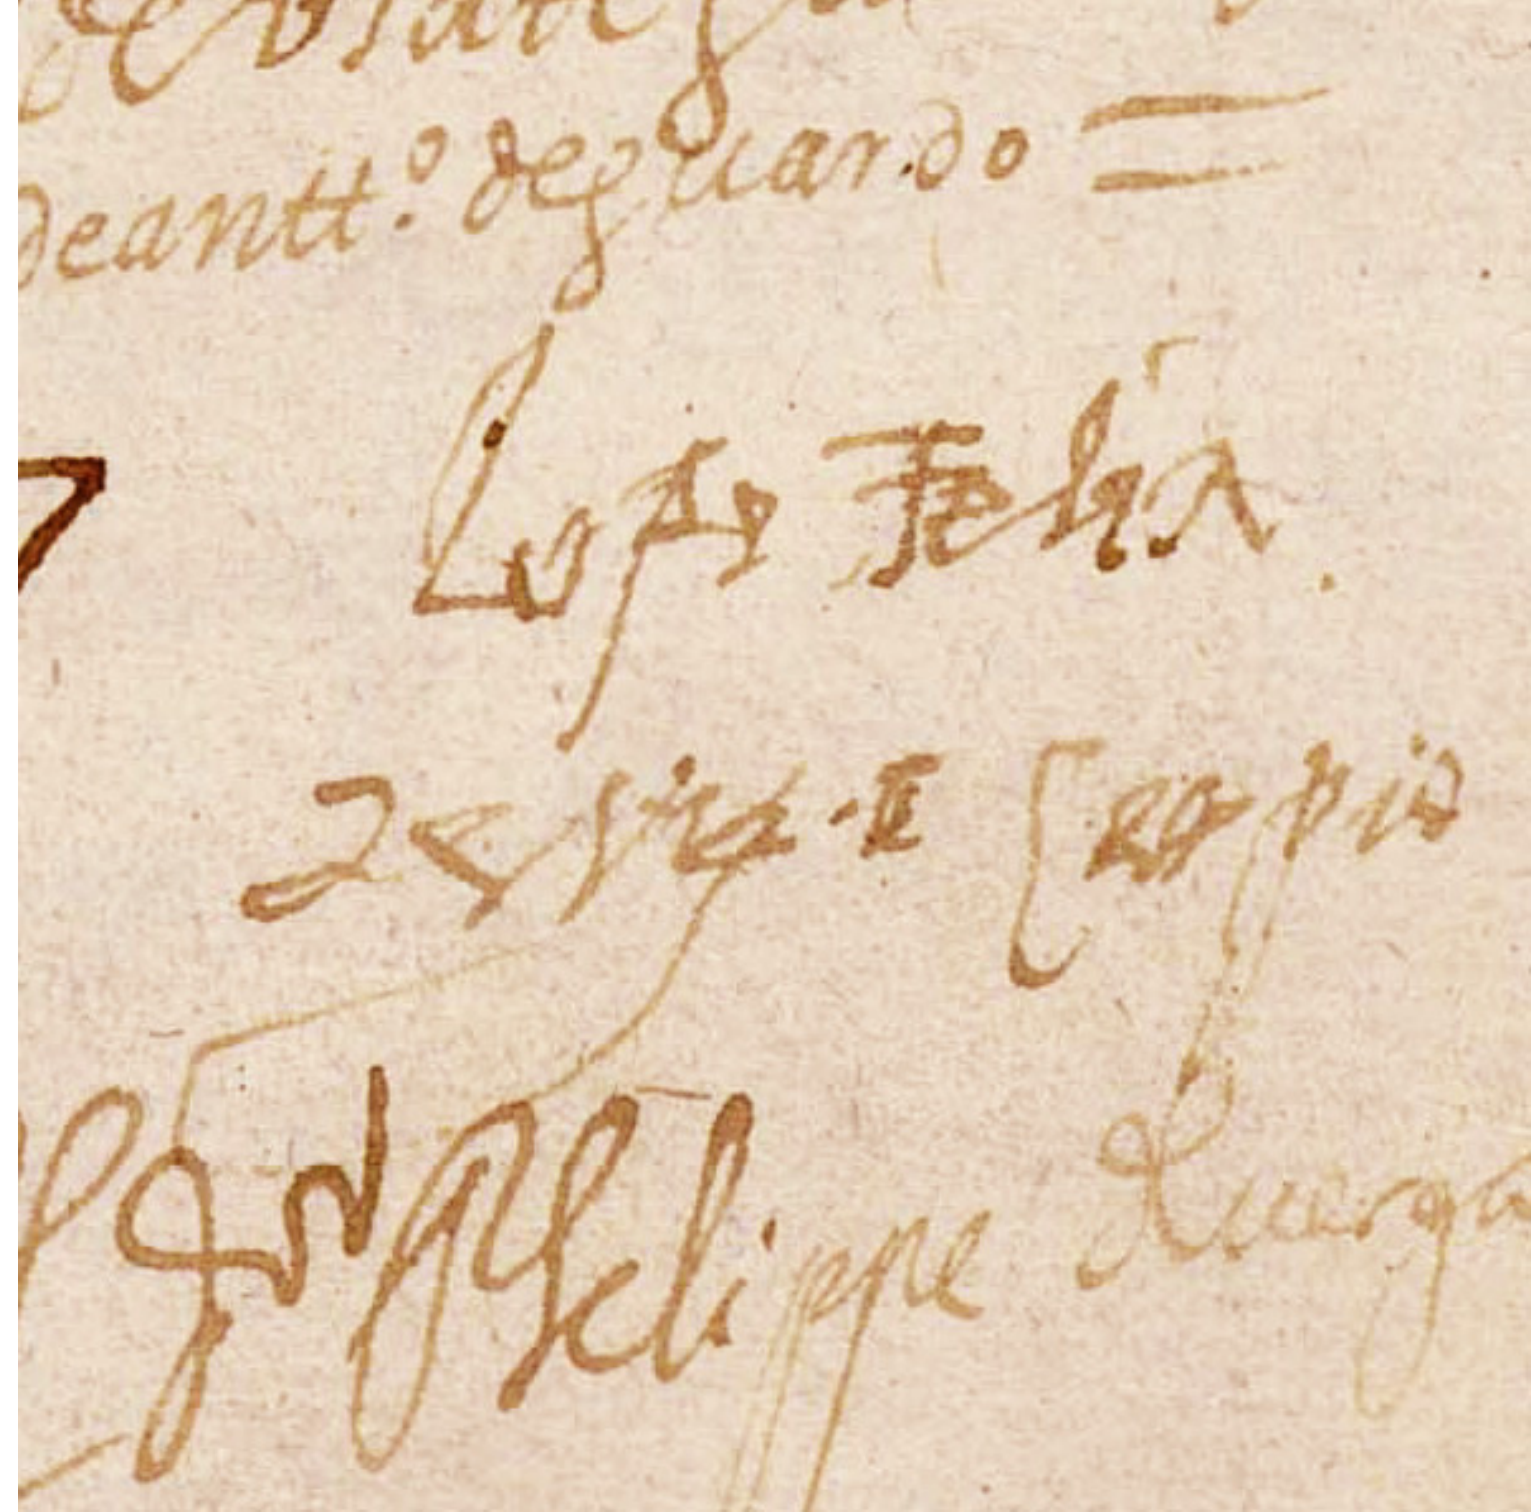 deantt.º deguardo =
Lope Felix
de Vega Carpio
Phelippe de uerga